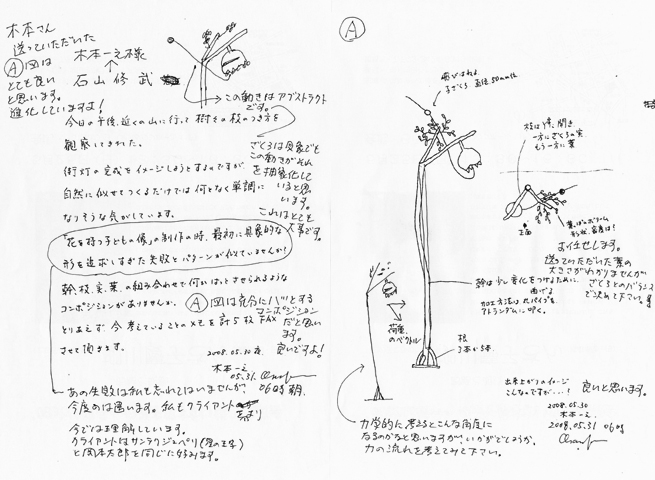 木本さん
送っていただいた
Ⓐ図は
とても良い
と思います。
進化していますよ！
木本一之様
↑
石山修武
この動きはアブストラクト
です。
今日の午後、近くの山に行って樹々の枝のつき方を
観察してきました。
街灯の完成をイメージしようとするのですが、
自然に似せてつくるだけでは何となく単調に
なりそうな気がしています。
ざくろは具象でも
この動きがそれ
を抽象化して
いると思
います。
これはとても
大事です。
「花を持つ子どもの像」の制作の時、最初に具象的な
形を追求しすぎた失敗とパターンが似ていませんか！
幹、枝、実、葉の組み合わせで何かはっとさせられるような
コンポジションがありませんか。
Ⓐ図は充分にハッとする
コンポジション
だと思い
ます。
良いですよ！
とりあえず、今考えていることのメモを計5枚FAX
させて頂きます。
2008.05.30 夜
木本一之
05.31.
06時 朝
あの失敗は私も忘れてはいませんが、
今度のは違います。私もクライアント
今では理解しています。
クライアントはサンテグジュペリ(星の王子)
と岡本太郎を同じに好みます。
Ⓐ
ざくろ 直径50mm位
枝は開き
一方にざくろの実
もう一方に葉
正面
葉っぱのボリューム
形状、密度は？
お任せします。
送っていただいた葉の
大きさがわかりませんが
ざくろとのバランス
で決めて下さい。
幹は少し変化をつけるために、
曲げる
加工方法は丸パイプを
アトランダムに叩く。
荷重
のベクトル
根
3本か5本
出来上がりのイメージ
こんなのですが・・・！
良いと思います。
2008.05.30
木本一之
2008.05.31 06時
力学的に考えるとこんな角度に
なるのかなと思いますが、いかがでしょうか。
力の流れを考えてみて下さい。